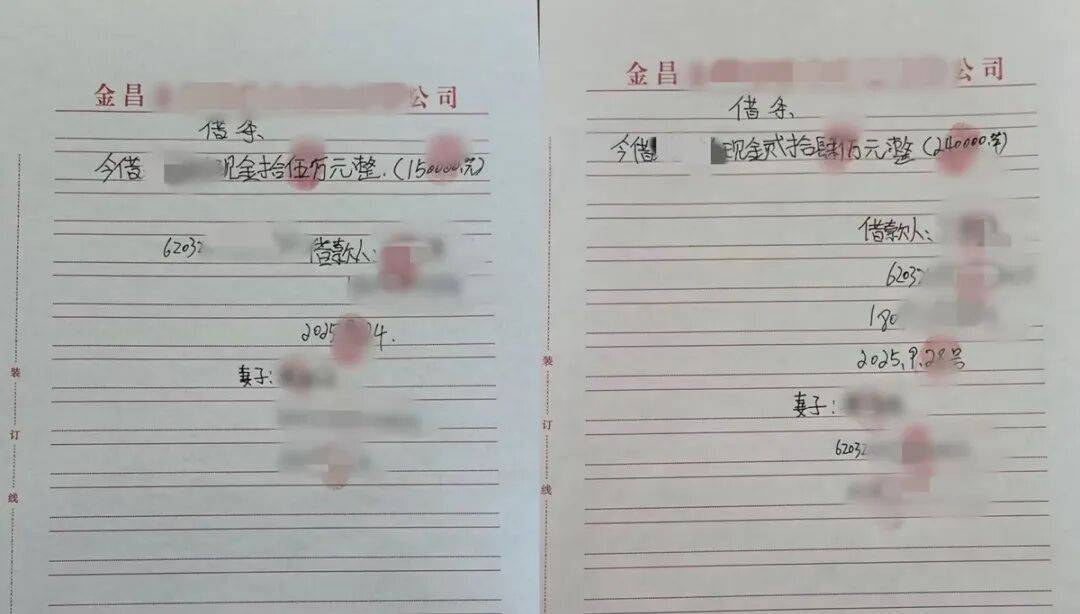 金昌 公司
借条
今借 现金拾伍万元整.(150000.元)
6203 借款人:
2025 24.
妻子:
装
订
线
金昌 公司
借条
今借 现金贰拾肆万元整(240000.元)
借款人:
6203
180
2025.9.28号
妻子:
6203
装
订
线